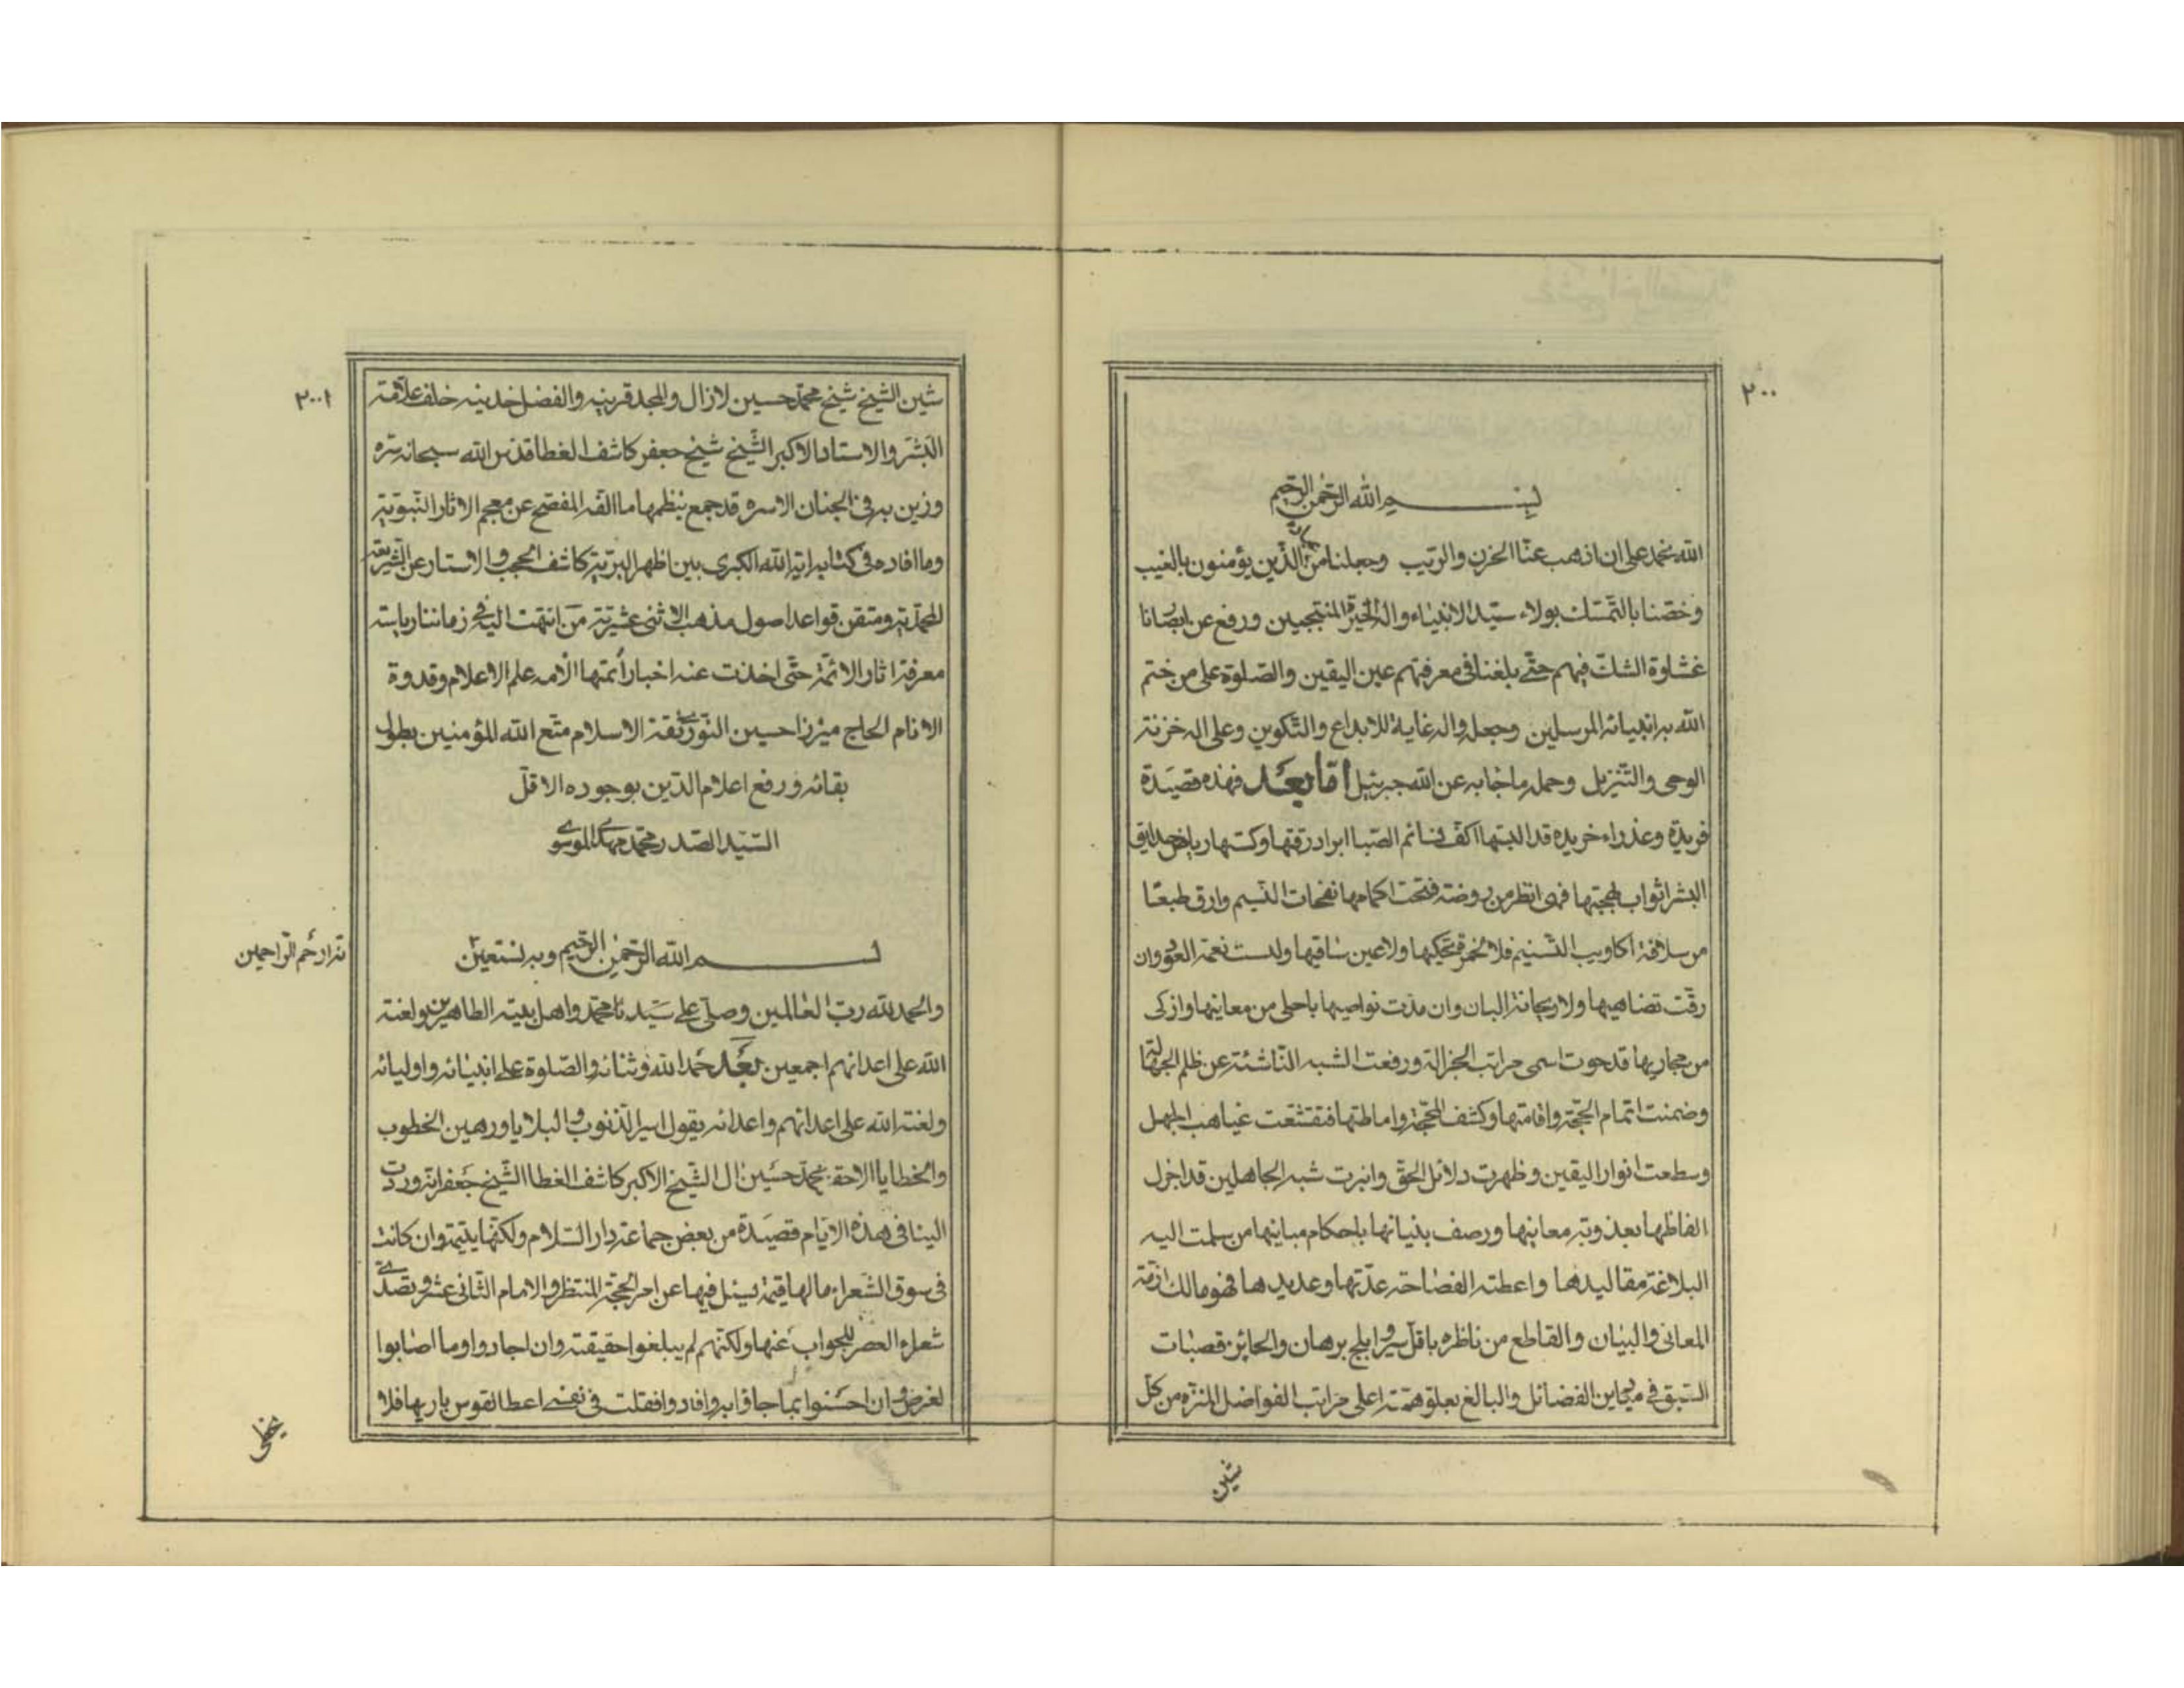 ٢٠٠
بسم الله الرحمن الرحيم
الله نحمد على ان اذهب عنا الحزن والريب وجعلنا من الذين يؤمنون بالغيب
وخصنا بالتمسك بولاء سيد الانبياء واله الخيرة المنتجبين ورفع عن ابصارنا
غشاوة الشك فيهم حتى بلغنا في معرفتهم عين اليقين والصلوة على من ختم
الله به انبيائه المرسلين وجعله واله غاية للابداع والتكوين وعلى اله خزنة
الوحى والتنزيل وحملة ما جاء به عن الله جبرئيل اما بعد فهذه قصيدة
فريدة وعذراء خريده قد البستها اكف نسائم الصبا ابراد رقتها وكستها رياض حدايق
البشر اثواب بهجتها فهى انظر من روضة فتحت اكمامها نفحات النسيم وارق طبعا
من سلافة اكاويب التسنيم فلا الخمرة تحكيها ولا عين ساقيها وليست نغمة العود وان
رقت تضاهيها ولا ريحانة البان وان مدت نواصيها باحلى من معانيها وازكى
من مجاريها قد حوت اسمى مراتب الجزالة ورفعت الشبه الناشئة عن ظلم الجهالة
وضمنت اتمام الحجة واقامتها وكشف المحجة واماطتها فتقشعت غياهب الجهل
وسطعت انوار اليقين وظهرت دلائل الحق وانبرت شبه الجاهلين قد اجزل
الفاظها بعذوبة معانيها ورصف بنيانها باحكام مبانيها من سلمت اليه
البلاغة مقاليدها واعطته الفصاحة عدتها وعديدها فهو مالك ازمة
المعانى والبيان والقاطع من ناظره باقل سير وابلج برهان والحائز قصبات
السبق في ميادين الفضائل والبالغ بعلو همته اعلى مراتب الفواضل المنزه من كل
شين
٢٠١
شين الشيخ شيخ محمد حسين لازال والمجد قرينه والفضل خدينه خلف علامة
البشر والاستاد الاكبر الشيخ شيخ جعفر كاشف الغطا قدس الله سبحانه سره
وزين به في الجنان الاسره قد جمع بنظمها ما الفه المفصح عن معجم الاثار النبوية
وما افاده في كتابه اية الله الكبرى بين اظهر البرية كاشف الحجب والاستار عن الشريعة
المحمدية ومتقن قواعد اصول مذهب الاثنى عشرية من انتهت اليه في زماننا رياسة
معرفة اثار الائمة حتى اخذت عنه اخبار أئمتها الامه علم الاعلام وقدوة
الانام الحاج ميرزا حسين النوري ثقة الاسلام متع الله المؤمنين بطول
بقائه ورفع اعلام الدين بوجوده الاقل
السيد الصدر محمد مهدى الموسوى
بسم الله الرحمن الرحيم وبه نستعين
انه ارحم الراحمين
والحمد لله رب العالمين وصلى على سيدنا محمد واهل بيته الطاهرين ولعنة
الله على اعدائهم اجمعين بعد حمدا لله وثنائه والصلوة على انبيائه واوليائه
ولعنة الله على اعدائهم واعدائه يقول اسير الذنوب والبلايا ورهين الخطوب
والخطايا الاحقر محمد حسين ال الشيخ الاكبر كاشف الغطا الشيخ جعفر انه وردت
الينا في هذه الايام قصيدة من بعض جماعة دار السلام ولكنها يتيمة وان كانت
في سوق الشعراء ما لها قيمة يسئل فيها عن امر الحجة المنتظر والامام الثانى عشر وتصدى
شعراء العصر للجواب عنها ولكنهم لم يبلغوا حقيقته وان اجادوا وما اصابوا
لغرض وان احسنوا بما جاؤا به وافادوا فقلت في نفسى اعط القوس باريها فلا